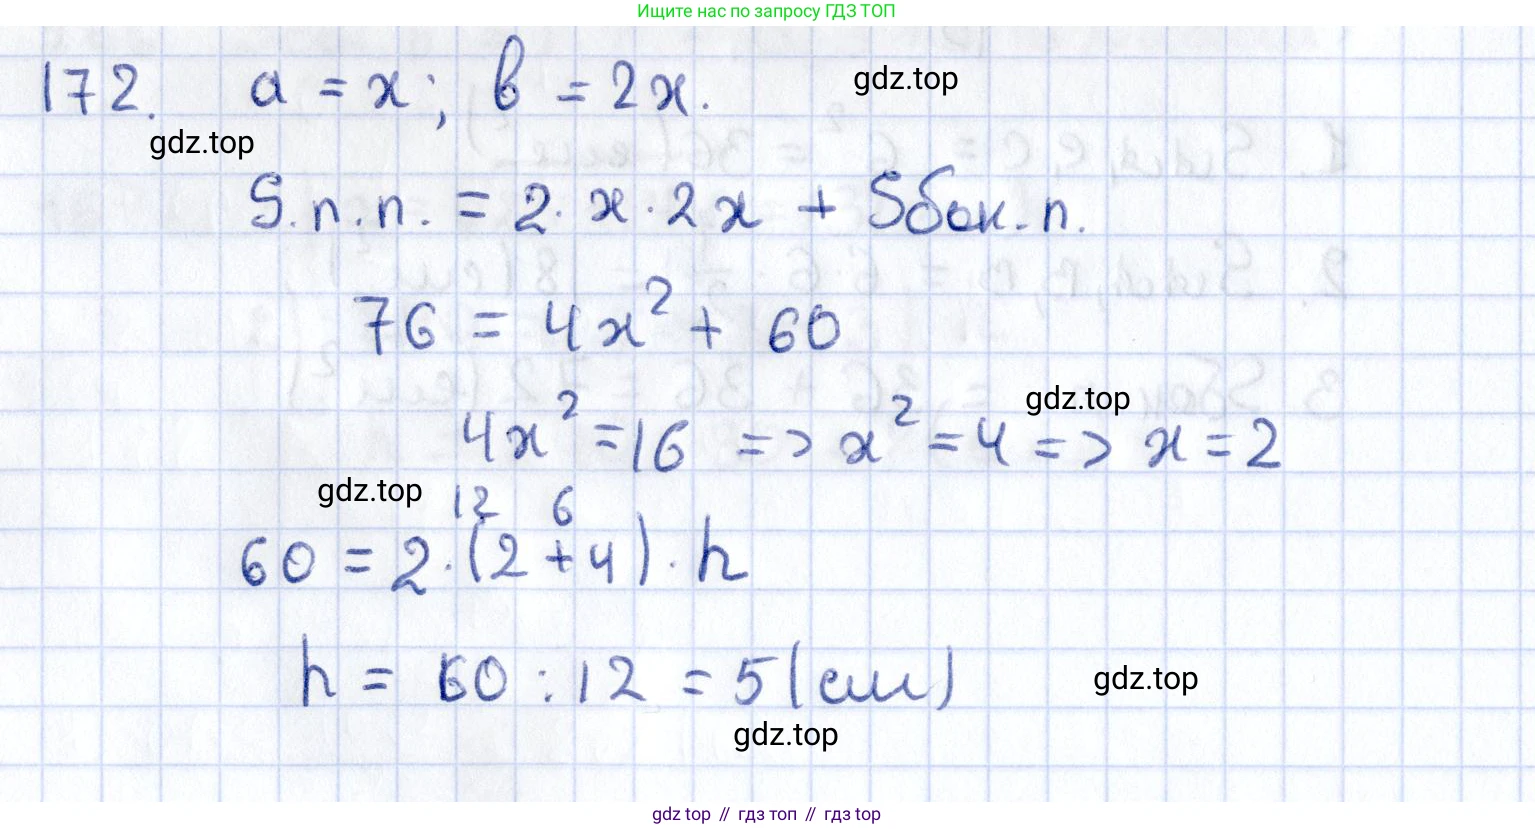 Ищите нас по запросу ГДЗ ТОП
172. a = x; b = 2x.
gdz.top
gdz.top
S.п.п. = 2·x·2x + Sбок.п.
76 = 4x² + 60
gdz.top
4x² = 16 => x² = 4 => x = 2
gdz.top
12 6
60 = 2·(2+4)·h
h = 60 : 12 = 5 (см)
gdz.top
gdz.top
gdz top // гдз топ // gdz top